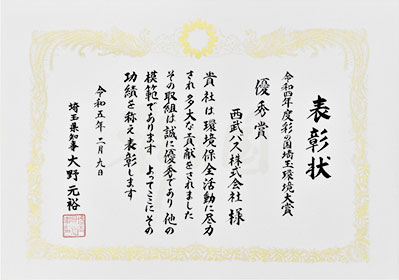 表彰状
令和四年度彩の国埼玉環境大賞
優秀賞
西武バス株式会社 様
貴社は環境保全活動に尽力
され多大な貢献をされました
その取組は誠に優秀であり他の
模範であります よってここにその
功績を称え表彰します
令和五年二月九日
埼玉県知事 大野元裕